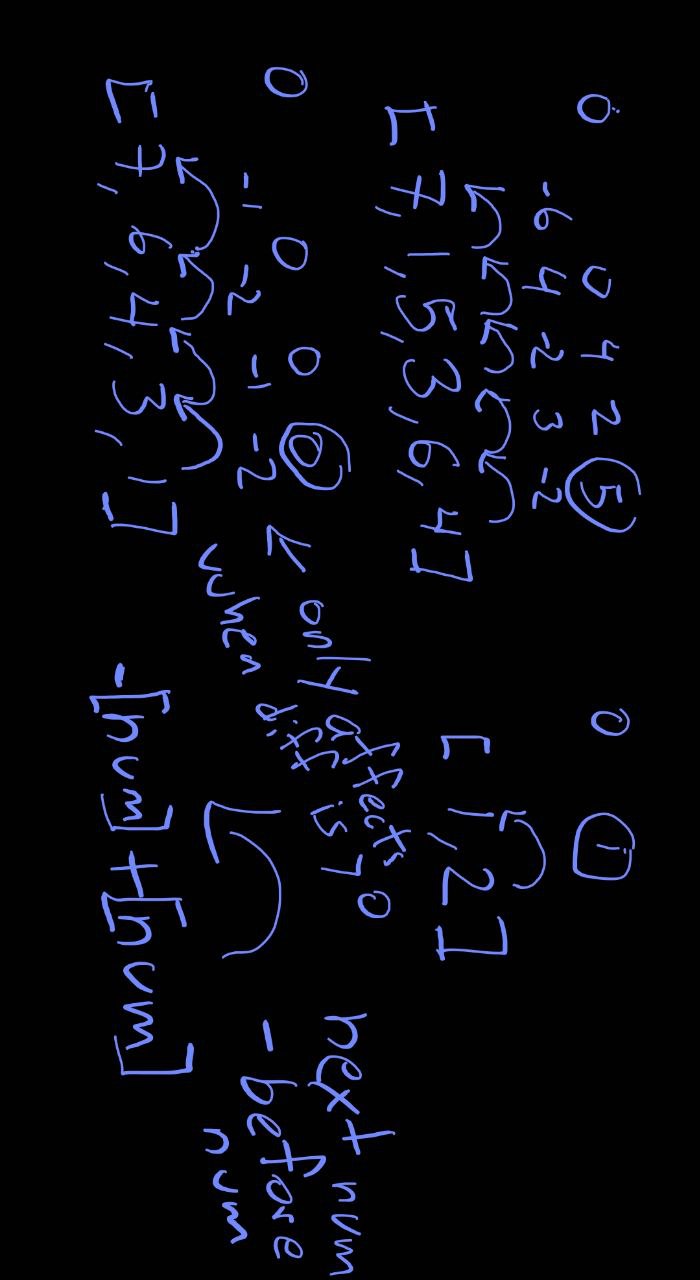 0 0 4 2 5
-6 4 -2 3 -2
[7, 1, 5, 3, 6, 4]
0 1
[1, 2]
0 0 0 0
-1 -2 -1 -2
[7, 6, 4, 3, 1]
only affects
when diff is > 0
next num
- before
num
-[num] + [num]